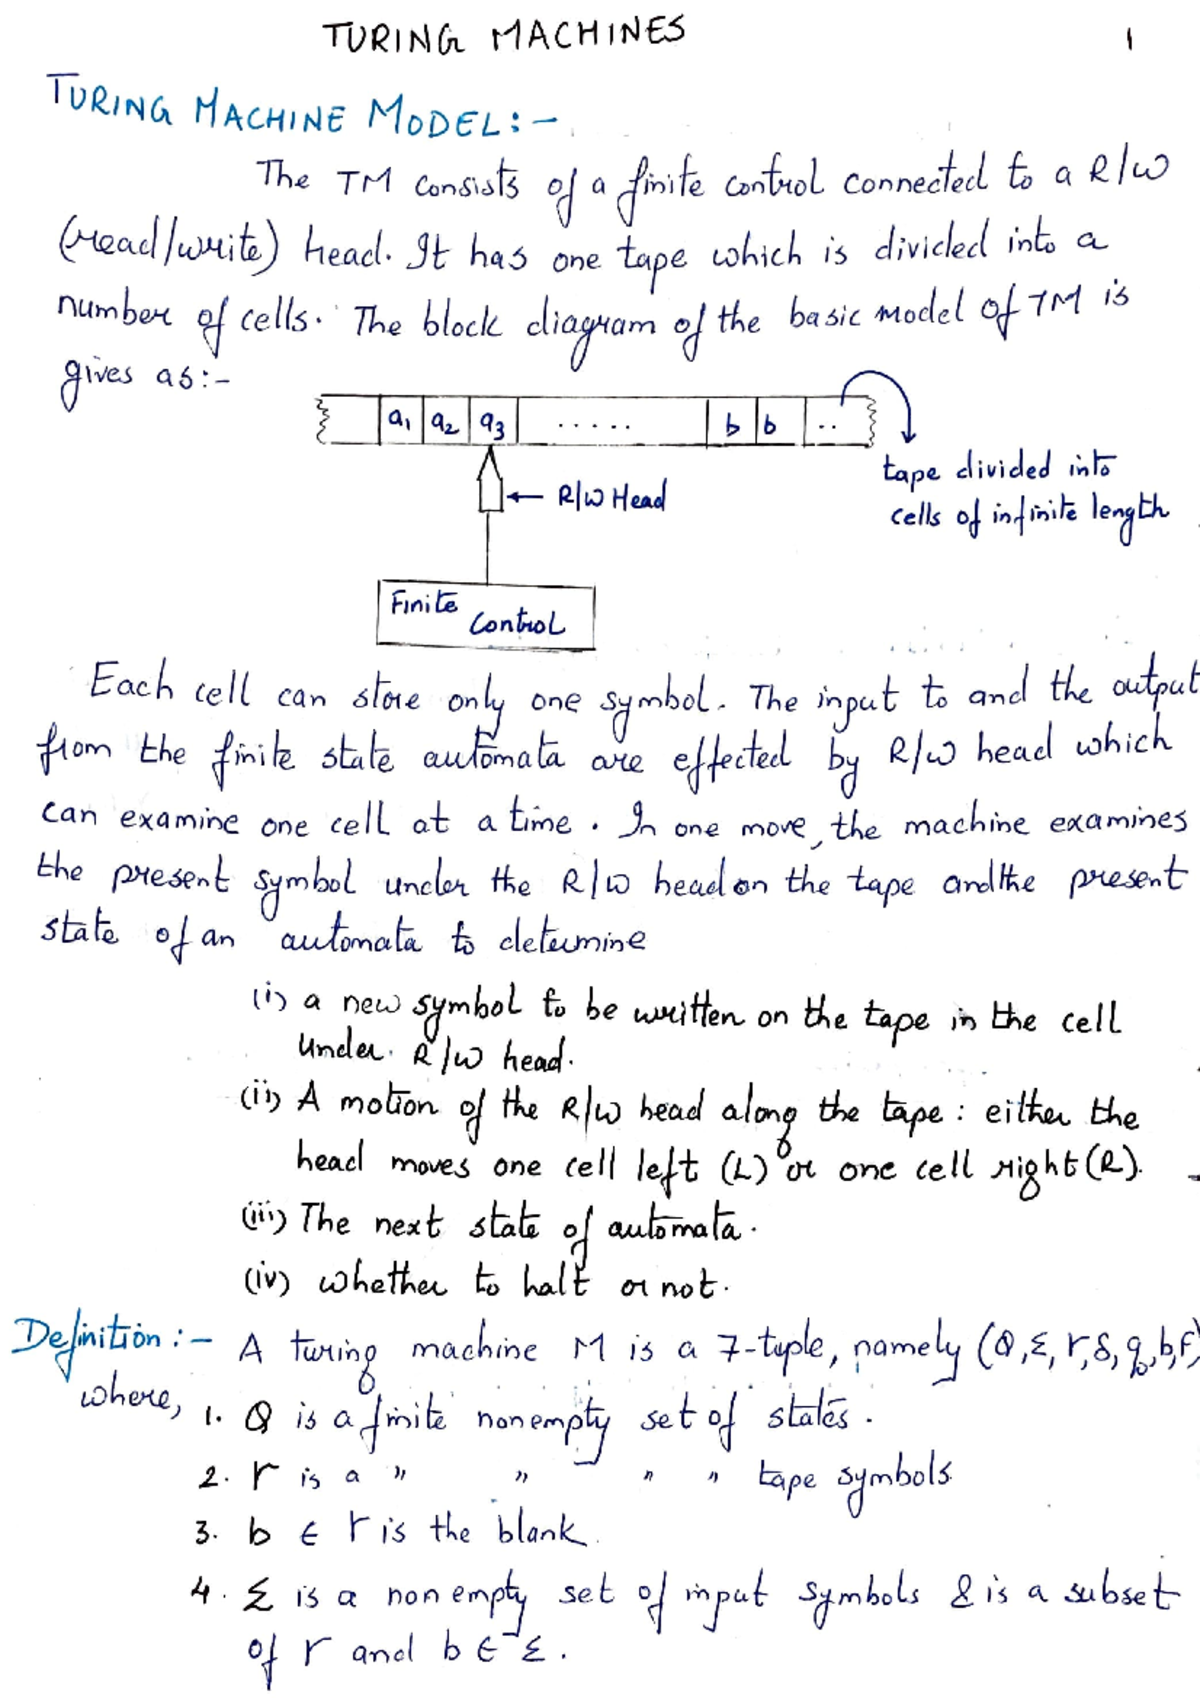 TURING MACHINES
1
TURING MACHINE MODEL:-
The TM consists of a finite control connected to a R/W
(read/write) head. It has one tape which is divided into a
number of cells. The block diagram of the basic model of TM is
gives as:-
a1 a2 a3 ..... b b ..
tape divided into
cells of infinite length
R/W Head
Finite Control
Each cell can store only one symbol. The input to and the output
from the finite state automata are effected by R/W head which
can examine one cell at a time. In one move, the machine examines
the present symbol under the R/W head on the tape and the present
state of an automata to determine
(i) a new symbol to be written on the tape in the cell
under R/W head.
(ii) A motion of the R/W head along the tape: either the
head moves one cell left (L) or one cell right (R).
(iii) The next state of automata.
(iv) whether to halt or not.
Definition:- A turing machine M is a 7-tuple, namely (Q,Σ,Γ,δ,q0,b,F)
where,
1. Q is a finite nonempty set of states.
2. Γ is a " " " " tape symbols
3. b ∈ Γ is the blank.
4. Σ is a non empty set of input symbols & is a subset
of Γ and b ∈¯ Σ.